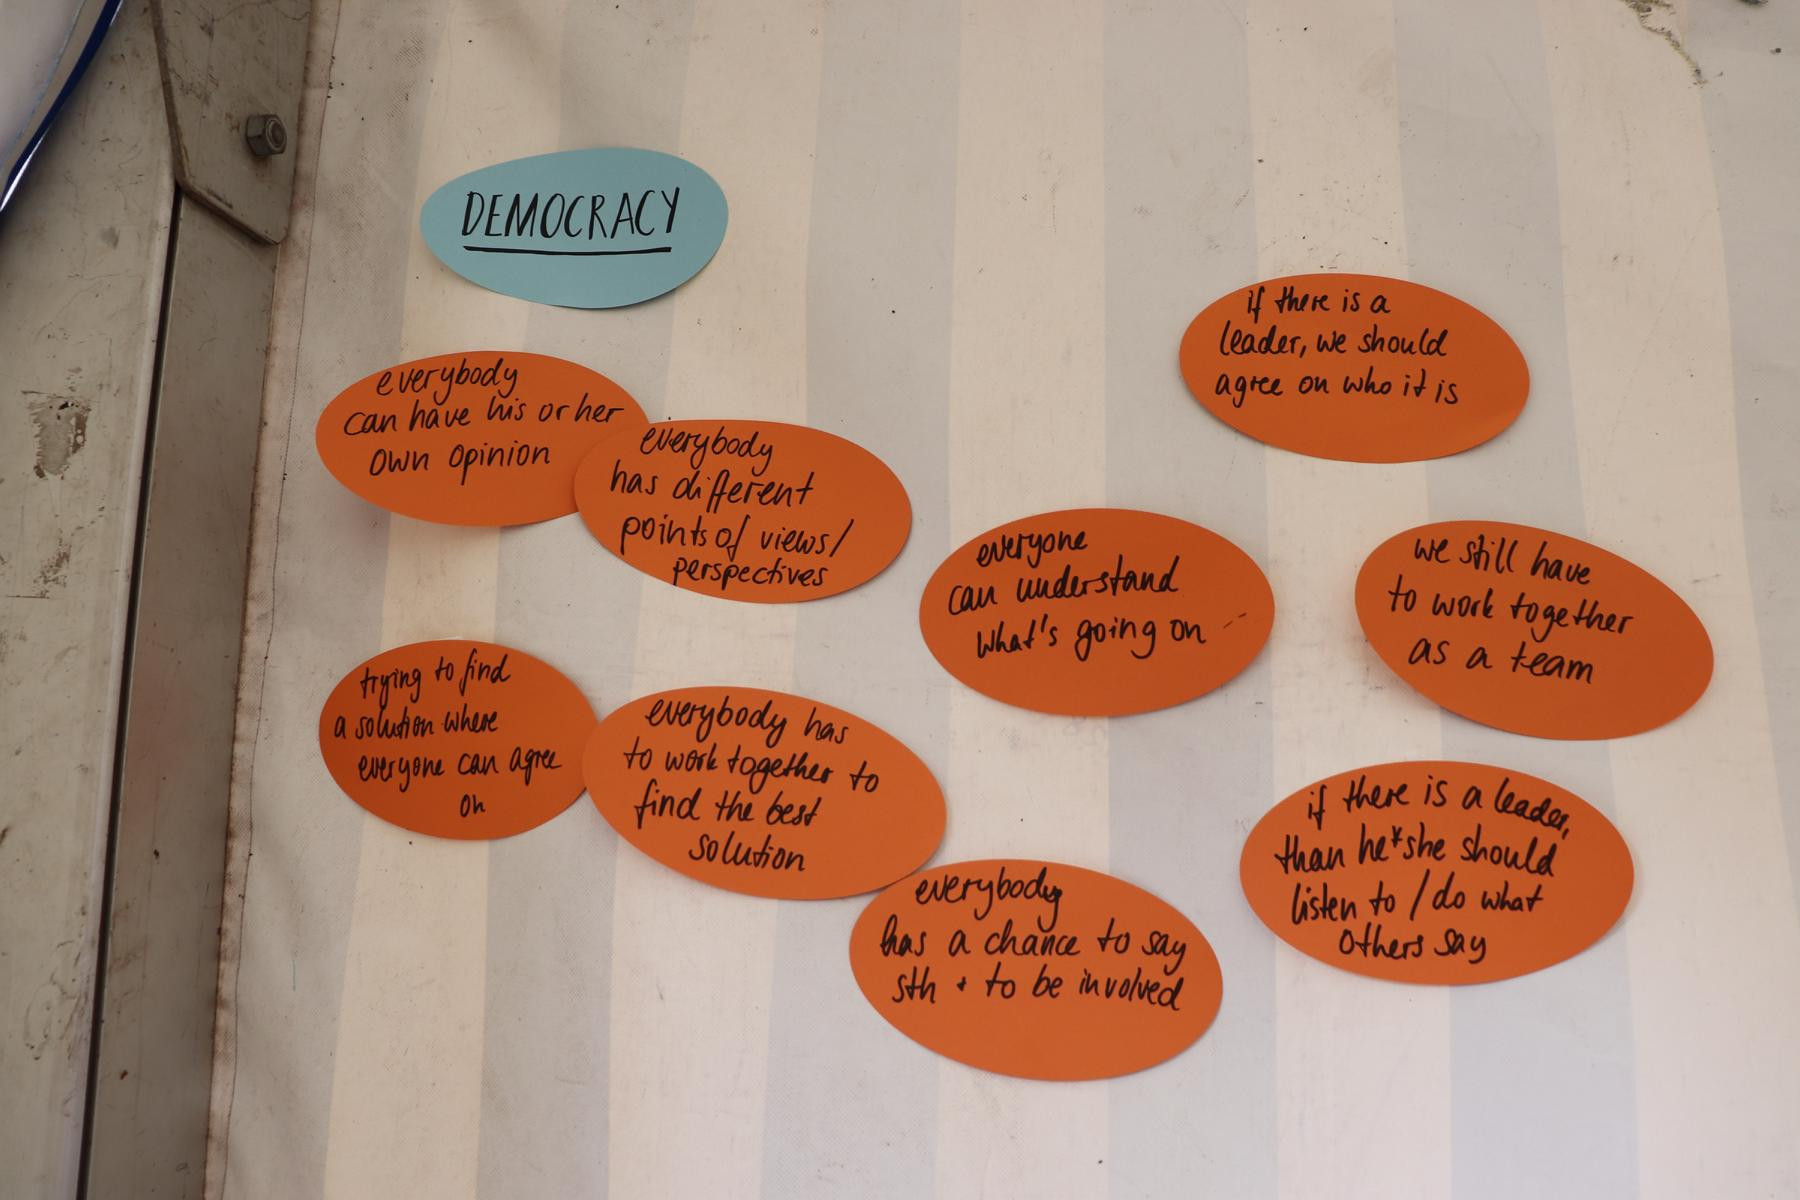 DEMOCRACY
everybody
can have his or her
own opinion
everybody
has different
points of views/
perspectives
if there is a
leader, we should
agree on who it is
everyone
can understand
what's going on
we still have
to work together
as a team
trying to find
a solution where
everyone can agree
on
everybody has
to work together to
find the best
solution
everybody
has a chance to say
sth + to be involved
if there is a leader,
than he*she should
listen to / do what
others say